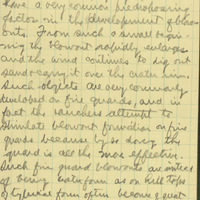 have a very council predisposing
factor in the development of blow
outs. From such a small begin-
ning the blowout rapidly enlarges
and the wind continues to dig out
sand & carry it over the crater rim.
Such objects are very commonly
developed on fire guards, and in
fact the ranchers attempt to
stimulate blowout formation on fire
guards because by so doing the
guard is all the more effective.
Such fire guard blowouts are instead
of being crateriform as on hill tops
of typical form often become great